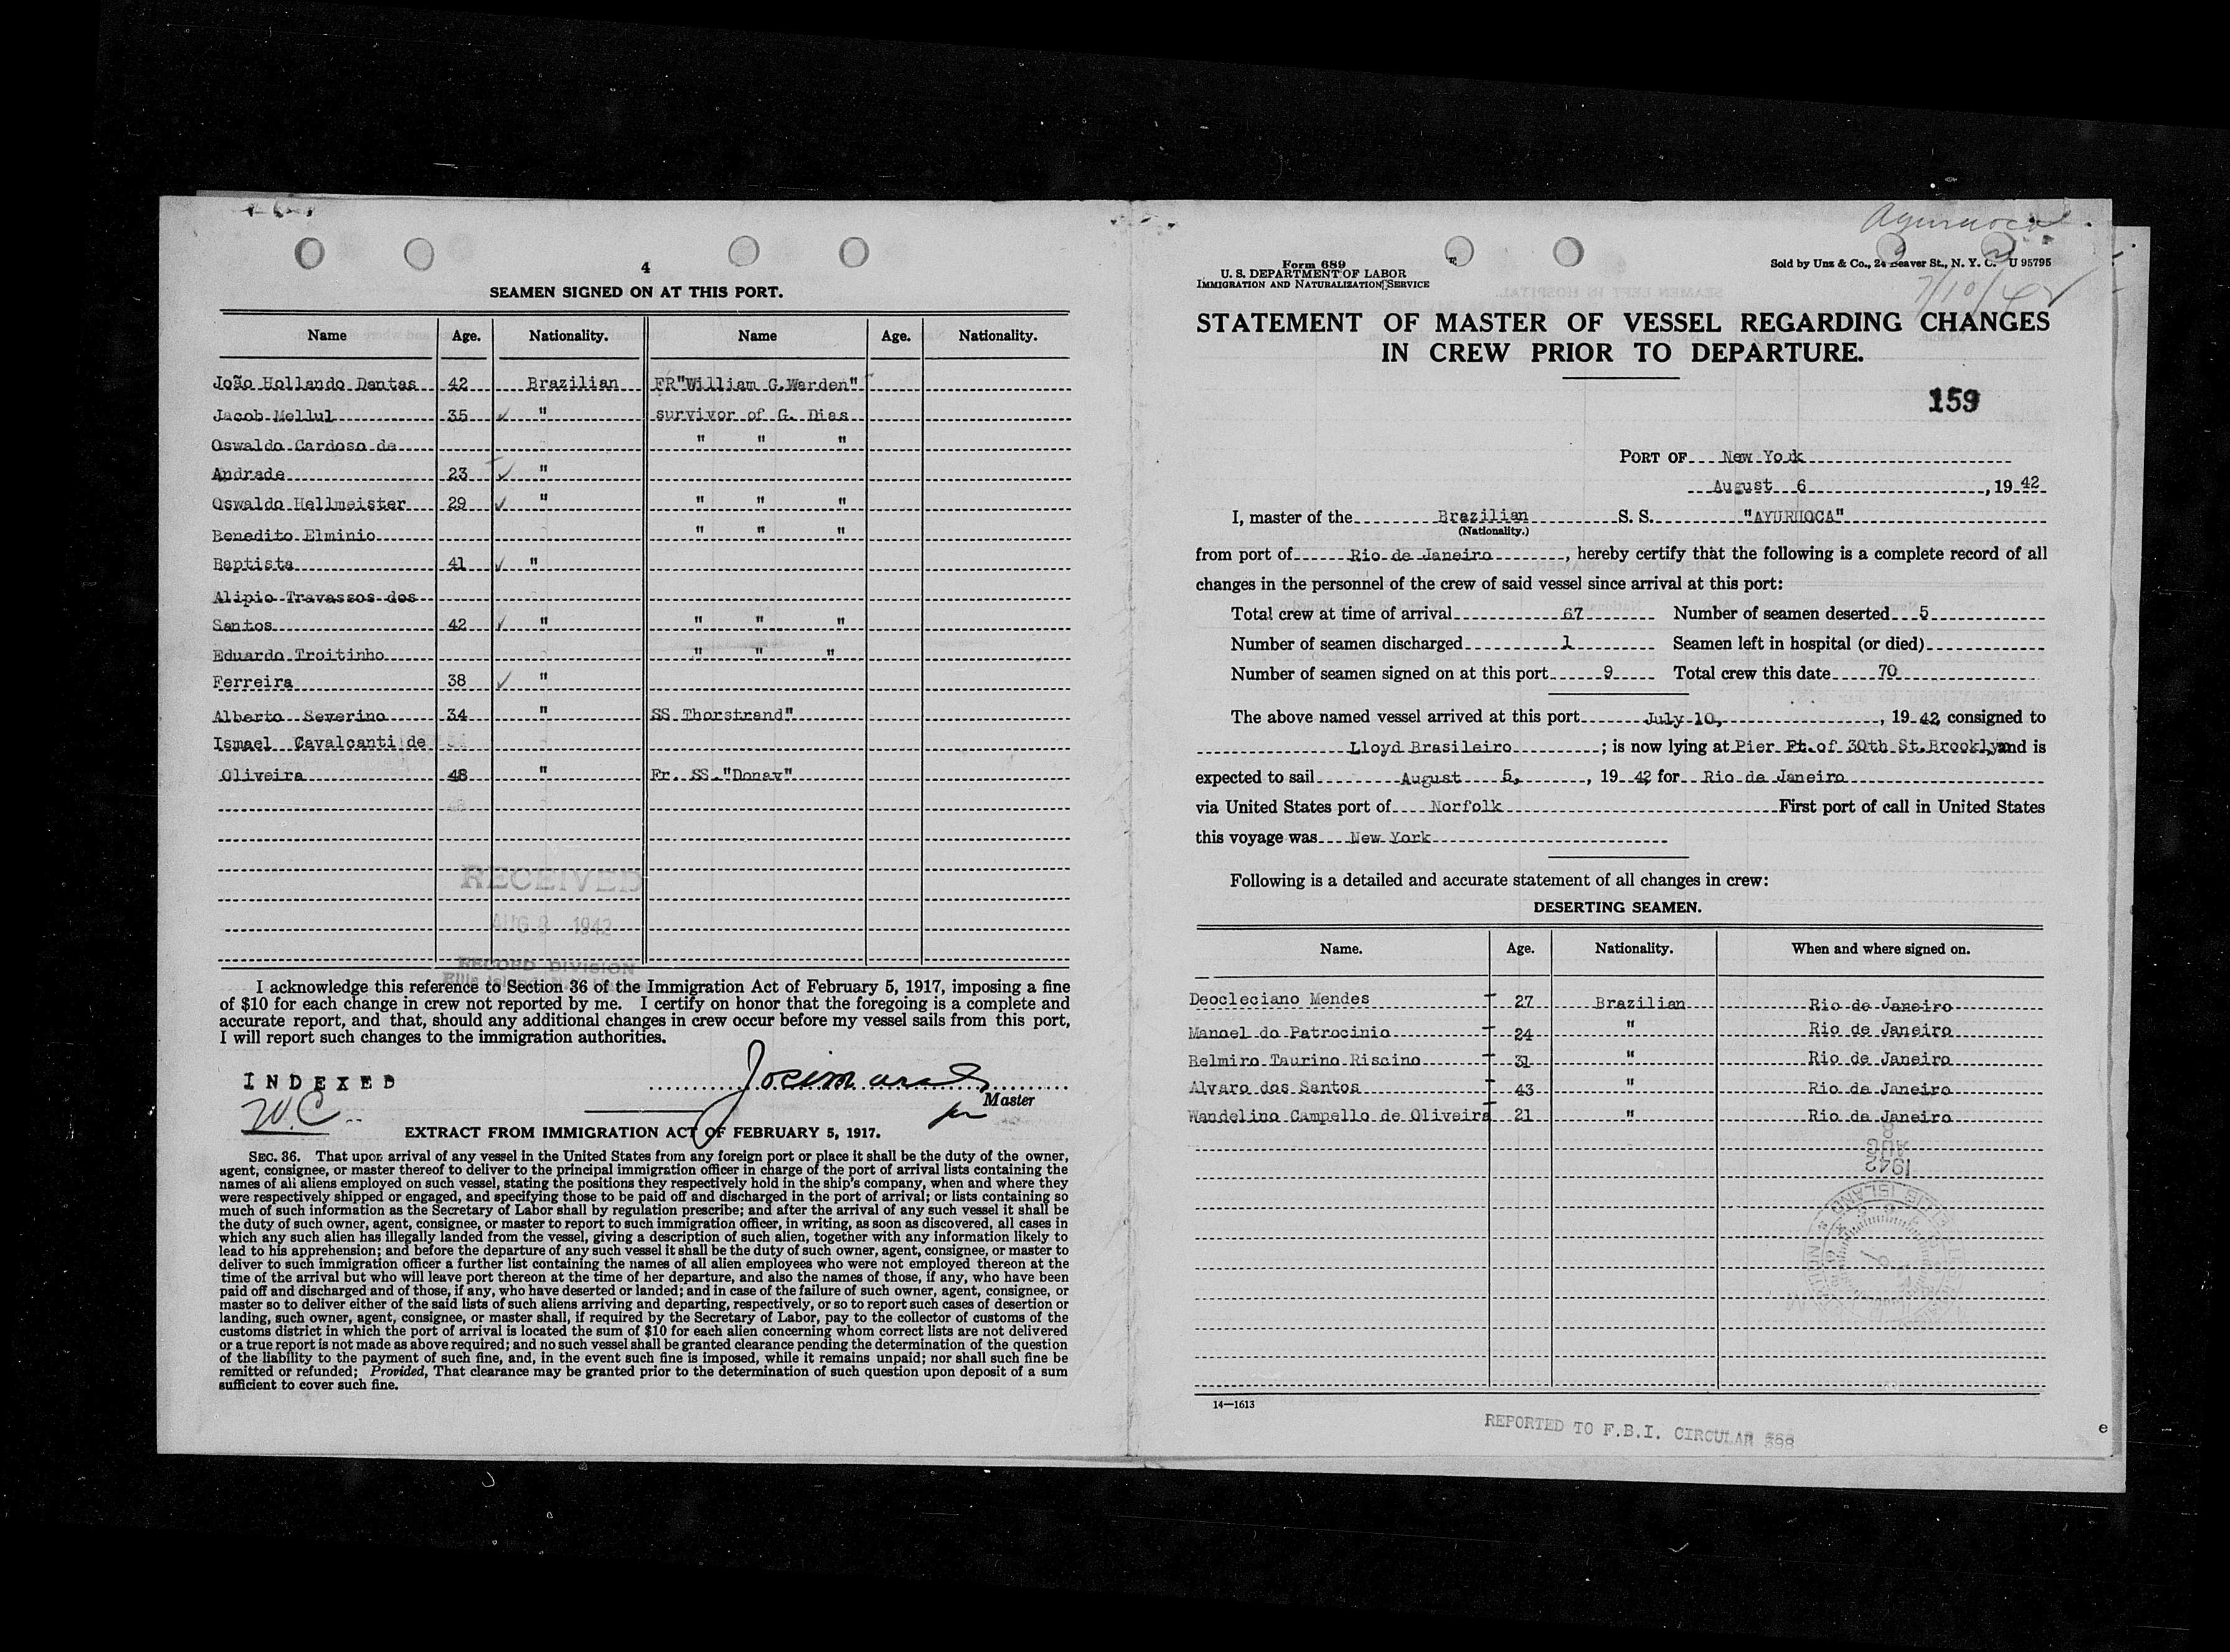 4
SEAMEN SIGNED ON AT THIS PORT.
Name Age. Nationality. Name Age. Nationality.
João Hollando Dantas 42 Brazilian FR"William G.Warden"
Jacob Mellul 35 ✓ " survivor of G. Dias
Oswaldo Cardoso de " " "
Andrade 23 ✓ "
Oswaldo Hellmeister 29 ✓ " " " "
Benedito Elminio " " "
Baptista 41 ✓ "
Alipio Travassos dos
Santos 42 ✓ " " " "
Eduardo Troitinho " " "
Ferreira 38 ✓ "
Alberto Severino 34 " SS Thorstrand"
Ismael Cavalcanti de
Oliveira 48 " Fr. SS "Donav"
RECEIVED
AUG 8 1942
RECORD DIVISION
Ellis Island
I acknowledge this reference to Section 36 of the Immigration Act of February 5, 1917, imposing a fine
of $10 for each change in crew not reported by me. I certify on honor that the foregoing is a complete and
accurate report, and that, should any additional changes in crew occur before my vessel sails from this port,
I will report such changes to the immigration authorities.
INDEXED
W.C.
Master
EXTRACT FROM IMMIGRATION ACT OF FEBRUARY 5, 1917.
SEC. 36. That upon arrival of any vessel in the United States from any foreign port or place it shall be the duty of the owner,
agent, consignee, or master thereof to deliver to the principal immigration officer in charge of the port of arrival lists containing the
names of all aliens employed on such vessel, stating the positions they respectively hold in the ship's company, when and where they
were respectively shipped or engaged, and specifying those to be paid off and discharged in the port of arrival; or lists containing so
much of such information as the Secretary of Labor shall by regulation prescribe; and after the arrival of any such vessel it shall be
the duty of such owner, agent, consignee, or master to report to such immigration officer, in writing, as soon as discovered, all cases in
which any such alien has illegally landed from the vessel, giving a description of such alien, together with any information likely to
lead to his apprehension; and before the departure of any such vessel it shall be the duty of such owner, agent, consignee, or master to
deliver to such immigration officer a further list containing the names of all alien employees who were not employed thereon at the
time of the arrival but who will leave port thereon at the time of her departure, and also the names of those, if any, who have been
paid off and discharged and of those, if any, who have deserted or landed; and in case of the failure of such owner, agent, consignee, or
master so to deliver either of the said lists of such aliens arriving and departing, respectively, or so to report such cases of desertion or
landing, such owner, agent, consignee, or master shall, if required by the Secretary of Labor, pay to the collector of customs of the
customs district in which the port of arrival is located the sum of $10 for each alien concerning whom correct lists are not delivered
or a true report is not made as above required; and no such vessel shall be granted clearance pending the determination of the question
of the liability to the payment of such fine, and, in the event such fine is imposed, while it remains unpaid; nor shall such fine be
remitted or refunded; Provided, That clearance may be granted prior to the determination of such question upon deposit of a sum
sufficient to cover such fine.
Ayuruoca
Form 689
U. S. DEPARTMENT OF LABOR
IMMIGRATION AND NATURALIZATION SERVICE
Sold by Unz & Co., 24 Beaver St., N. Y. C. U 95795
7/10/42
STATEMENT OF MASTER OF VESSEL REGARDING CHANGES
IN CREW PRIOR TO DEPARTURE.
159
PORT OF New York
August 6, 19 42
I, master of the Brazilian S. S. "AYURUOCA"
(Nationality.)
from port of Rio de Janeiro, hereby certify that the following is a complete record of all
changes in the personnel of the crew of said vessel since arrival at this port:
Total crew at time of arrival 67 Number of seamen deserted 5
Number of seamen discharged 1 Seamen left in hospital (or died)
Number of seamen signed on at this port 9 Total crew this date 70
The above named vessel arrived at this port July 10, , 19 42, consigned to
Lloyd Brasileiro ; is now lying at Pier Ft. of 30th St. Brooklyn and is
expected to sail August 5, , 19 42 for Rio de Janeiro
via United States port of Norfolk First port of call in United States
this voyage was New York
Following is a detailed and accurate statement of all changes in crew:
DESERTING SEAMEN.
Name. Age. Nationality. When and where signed on.
Deocleciano Mendes 27 Brazilian Rio de Janeiro
Manoel do Patrocinio 24 " Rio de Janeiro
Belmiro Taurino Riscino 31 " Rio de Janeiro
Alvaro dos Santos 43 " Rio de Janeiro
Wandelino Campello de Oliveira 21 " Rio de Janeiro
8
AUG
1942
14—1613
REPORTED TO F.B.I. CIRCULAR
e